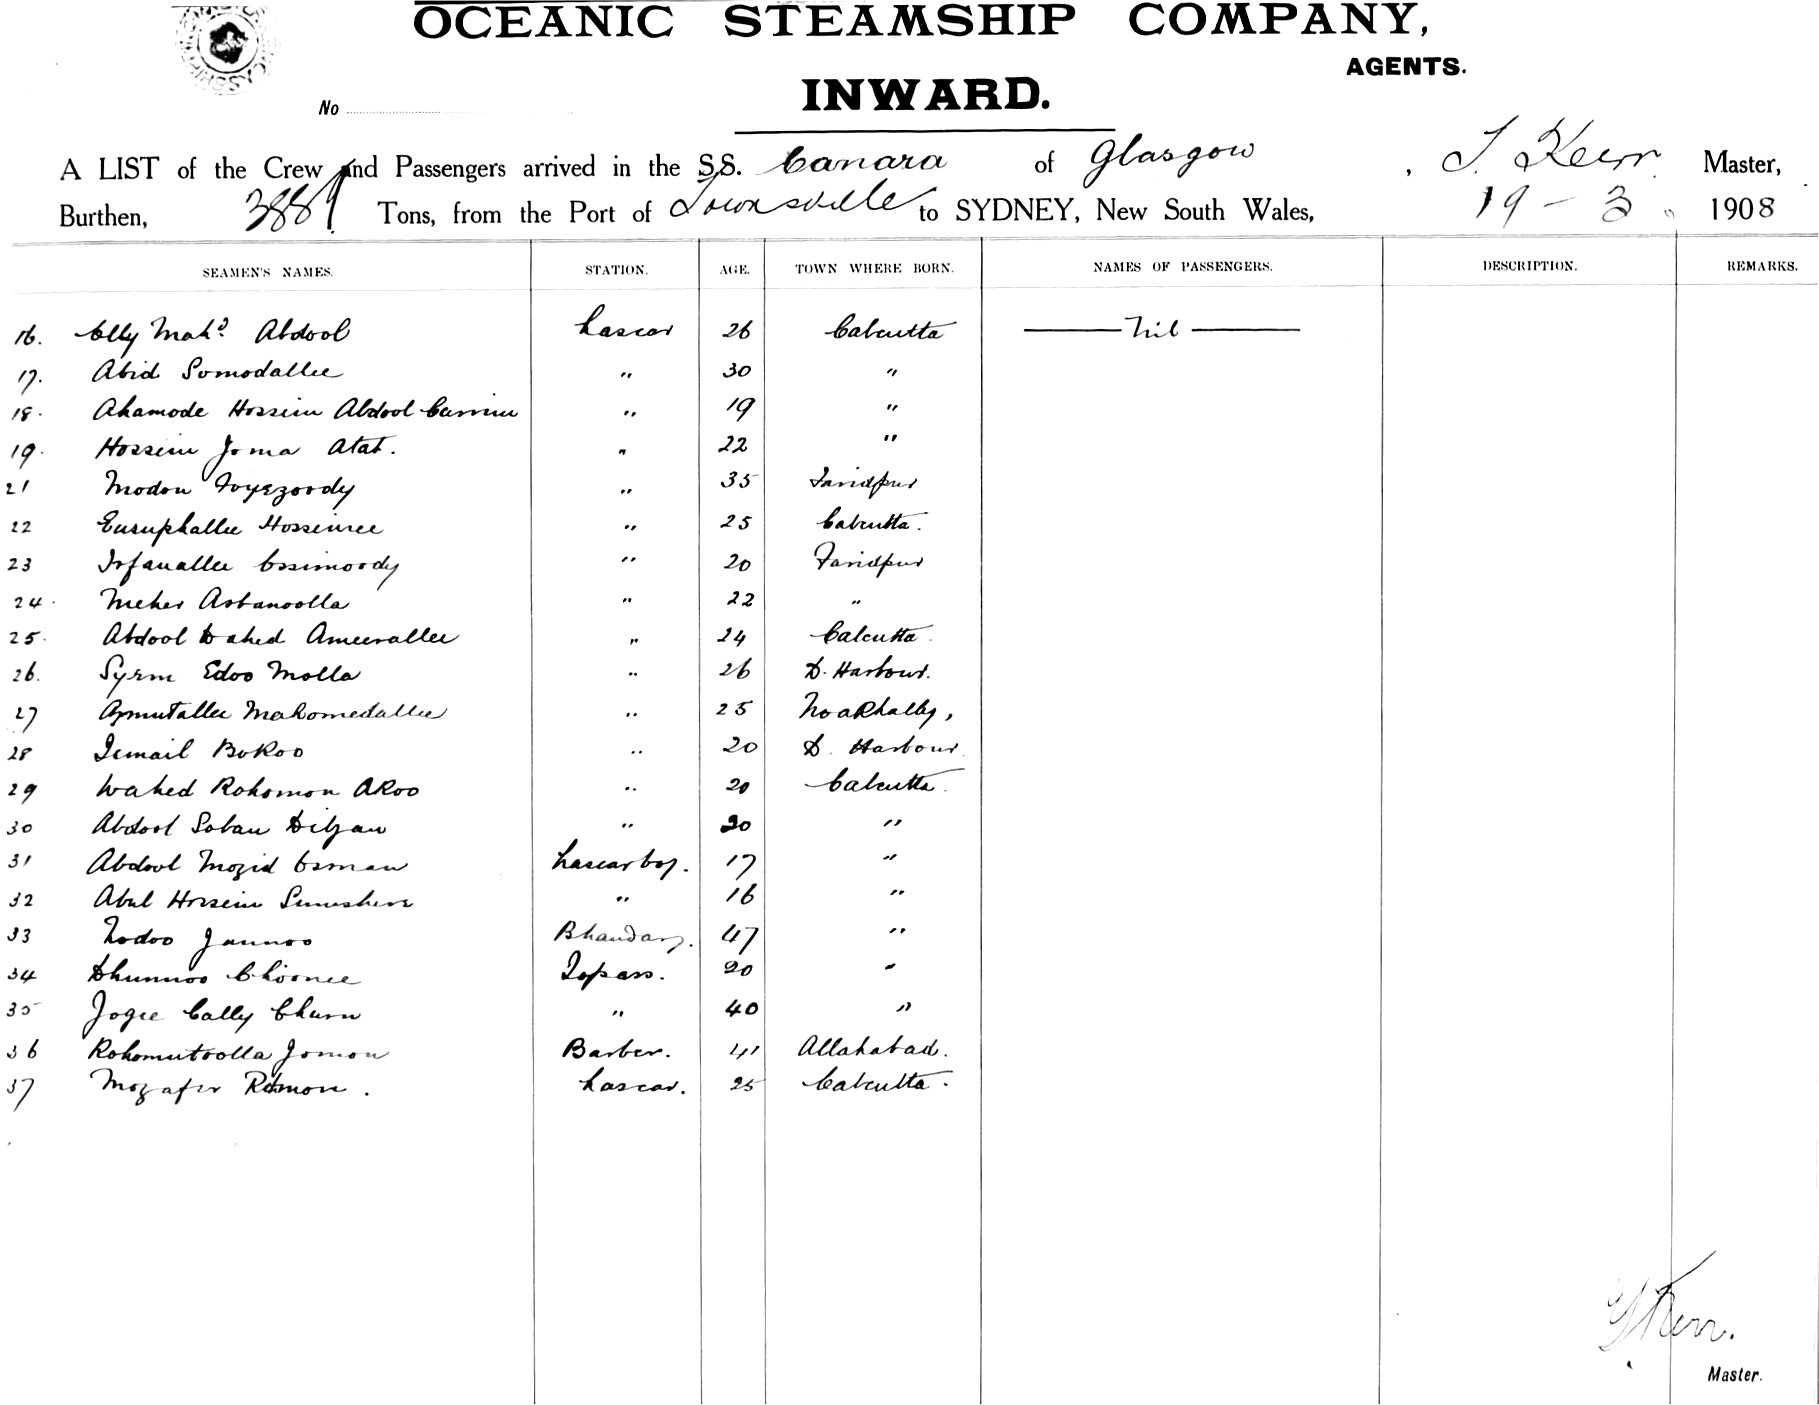 OCEANIC STEAMSHIP COMPANY,
AGENTS.
INWARD.
No
A LIST of the Crew and Passengers arrived in the S.S. Canara of Glasgow, J. Kerr Master,
Burthen, 3889 Tons, from the Port of Townsville to SYDNEY, New South Wales, 19 - 3. 1908
SEAMEN'S NAMES. STATION. AGE. TOWN WHERE BORN. NAMES OF PASSENGERS. DESCRIPTION. REMARKS.
16. Elly Mahd Abdool Lascar 26 Calcutta Nil
17. Abid Somodallee " 30 "
18. Ahamode Hossein Abdool Carrim " 19 "
19. Hossein Joma Atat. " 22 "
21 Modon Foyezoody " 35 Faridpur
22 Eusuphallee Hosseinee " 25 Calcutta.
23 Irfanallee Ossimoody " 20 Faridpur
24. Meher Asbanoolla " 22 "
25. Abdool Wahed Ameerallee " 24 Calcutta.
26. Syem Edoo Molla " 26 D. Harbour.
27 Azmutallee Mahomedallee " 25 Noakhally,
28 Ismail Bokoo " 20 D. Harbour.
29 Wahed Rohomon Akoo " 20 Calcutta.
30 Abdool Soban Diljan " 20 "
31 Abdool Mozid Osman Lascar boy. 17 "
32 Abul Hossein " 16 "
33 Nodoo Jannoo Bhandary. 47 "
34 Dhunnoo Choonee Topass. 20 "
35 Jogee Cally Churn " 40 "
36 Rohomutoolla Jomon Barber. 41 Allahabad.
37 Mozafer Rohmon. Lascar. 25 Calcutta.
J Kerr.
Master.